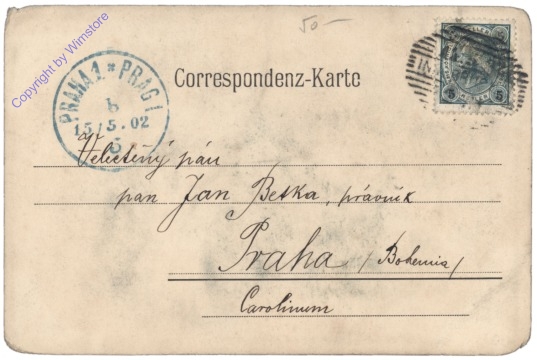 50-
Correspondenz-Karte
PRAHA 1 * PRAG 1
b
15/5.02
5
5 5
Velectěný pán
pan Jan Betka, právník
Praha /Bohemia/
Carolinum
Copyright by Wimstore